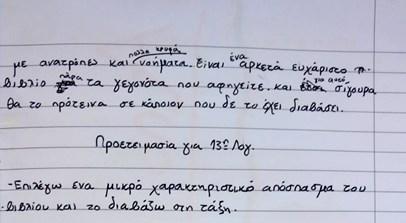 πολλα κρυφά
με ανατροπές και νοήματα. Είναι ένα αρκετά ευχάριστο
βιβλίο πάρα τα γεγονότα που αφηγείτε. και γιο αυτό σίγουρα
θα το πρότεινα σε κάποιον που δε το έχει διαβάσει.
Προετειμασία για 13η Λογ.
-Επιλέγω ένα μικρό χαρακτηριστικό απόσπασμα του
βιβλίου και το διαβάζω στη τάξη.